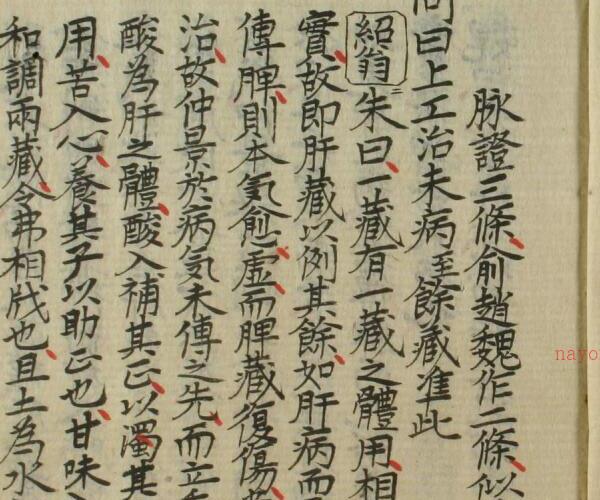 脉證三條俞趙魏作二條似
問曰上工治未病至餘藏准此
紹翁 朱曰一藏有一藏之體用相
實故即肝藏以例其餘如肝病而
傳脾則本氣愈虛而脾藏復傷
治故仲景於病気未傳之先而立
酸為肝之體酸入補其正以濁其
用苦入心養其子以助正也甘味
和調兩藏令弗相戕也且土為水
nayo